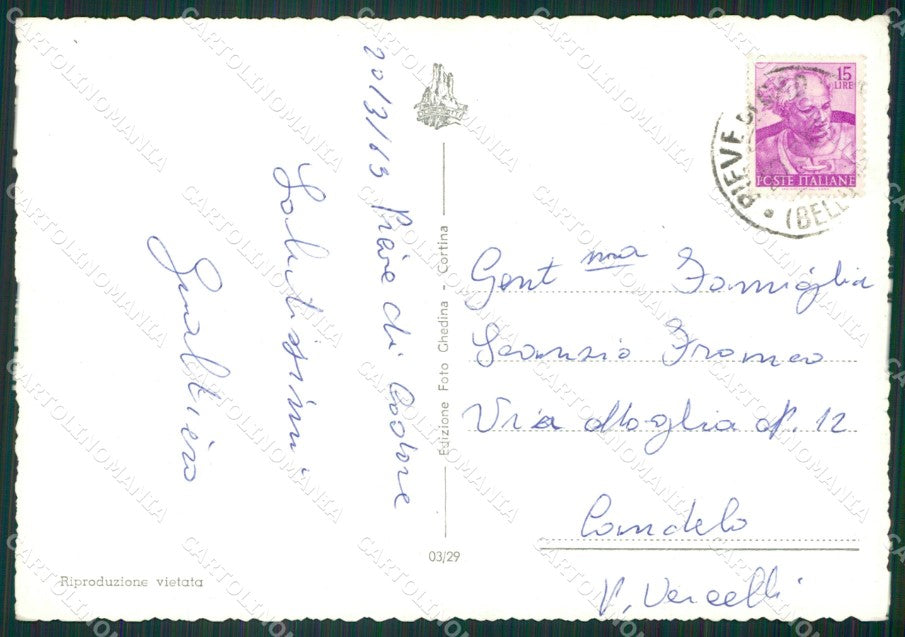 20/3/63 Pieve di Cadore
Salutissimi
Gualtiero
Edizione Foto Ghedina - Cortina
03/29
Riproduzione vietata
15
LIRE
POSTE ITALIANE
PIEVE DI
(BELL
Gent ma Famiglia
Franco
Via N. 12
Candelo
P. Vercelli
CARTOLINOMANIA